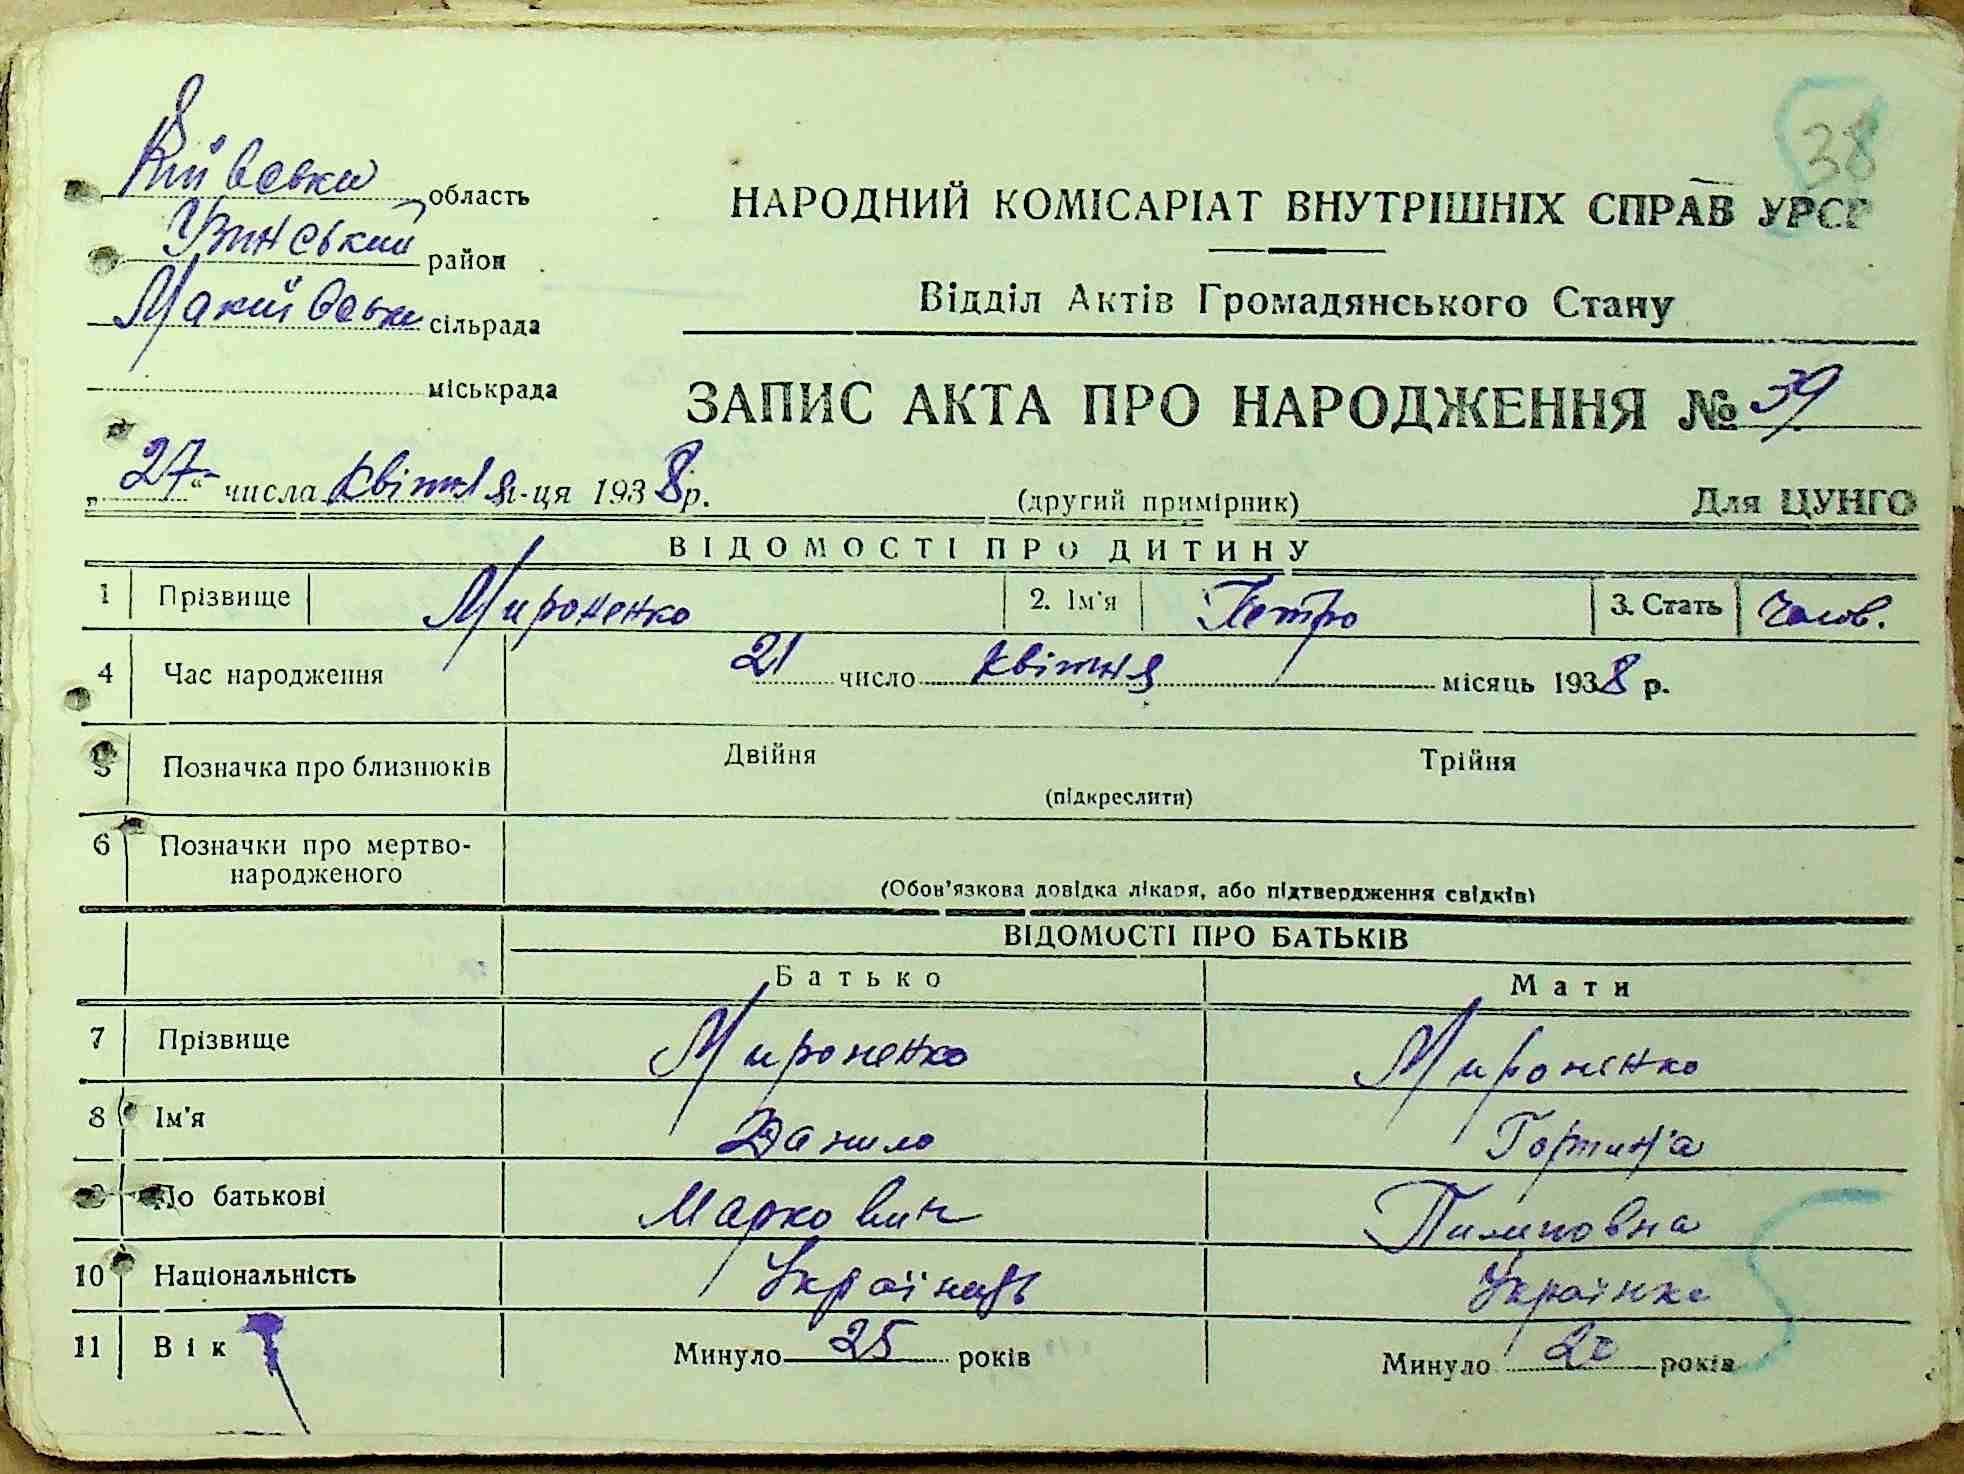 38
Київська область
Узинський район
Макиївська сільрада
міськрада
НАРОДНИЙ КОМІСАРІАТ ВНУТРІШНІХ СПРАВ УРСР
Відділ Актів Громадянського Стану
ЗАПИС АКТА ПРО НАРОДЖЕННЯ № 39
„27“ числа квітня м-ця 1938 р.
(другий примірник)
Для ЦУНГО
ВІДОМОСТІ ПРО ДИТИНУ
1 Прізвище Мироненко 2. Ім'я Петро 3. Стать Чолов.
4 Час народження 21 число квітня місяць 1938 р.
5 Позначка про близнюків Двійня Трійня
(підкреслити)
6 Позначки про мертво-
народженого
(Обов'язкова довідка лікаря, або підтвердження свідків)
ВІДОМОСТІ ПРО БАТЬКІВ
Батько Мати
7 Прізвище Мироненко Мироненко
8 Ім'я Данило
9 По батькові Маркович Пилиповна
10 Національність Українець Українка
11 Вік Минуло 25 років Минуло 20 років